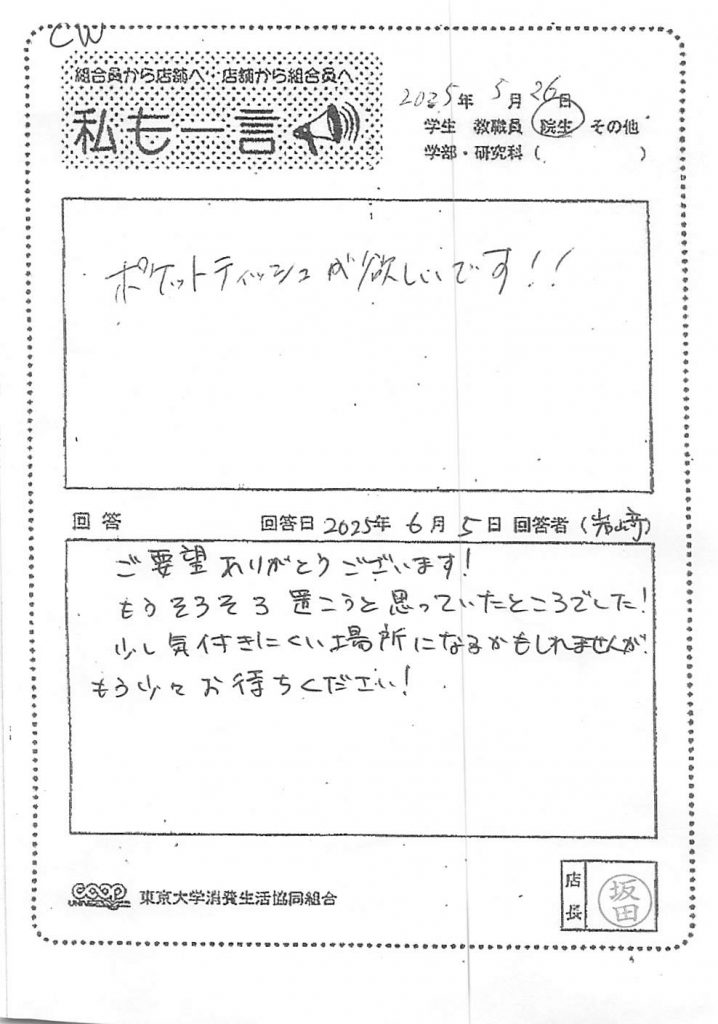 CW
組合員から店舗へ 店舗から組合員へ
私も一言
2025年 5月 26日
学生 教職員 院生 その他
学部・研究科( )
ポケットティッシュが欲しいです!!
回答 回答日 2025年 6月 5日 回答者(岩崎)
ご要望ありがとうございます!
もうそろそろ置こうと思っていたところでした!
少し気付きにくい場所になるかもしれませんが
もう少々お待ちください!
coop 東京大学消費生活協同組合
店長
坂田